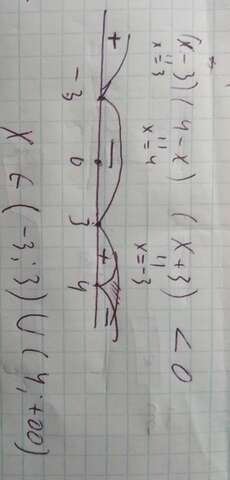 (x-3)(4-x)(x+3) < 0
x=3 x=4 x=-3
+ — + —
-3 0 3 4
X ∈ (-3; 3) ∪ (4; +∞)